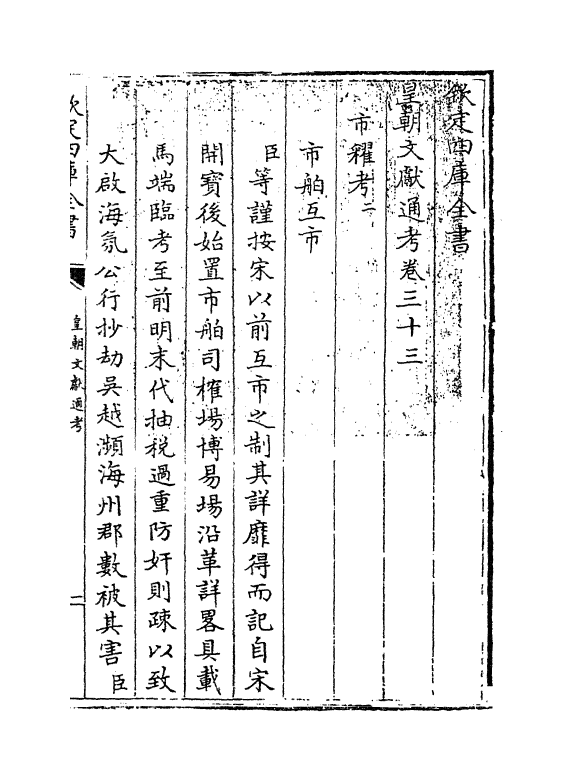 欽定四庫全書
皇朝文獻通考卷三十三
市糴考二
市舶互市
臣等謹按宋以前互市之制其詳靡得而記自宋
開寶後始置市舶司榷場博易場沿革詳畧具載
馬端臨考至前明末代抽税過重防奸則疎以致
大啟海氛公行抄劫吳越瀕海州郡數被其害臣
欽定四庫全書
皇朝文獻通考